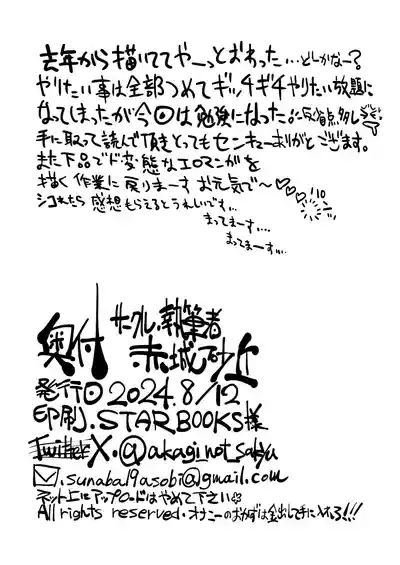 去年から描いててやーっとおわった…どしかなー?
やりたい事は全部つめてギッチギチやりたい放題に
なってしまったが今回は勉強になった。反省点多し
手に取って読んで頂きとってもセンキューありがとございます。
また下品でド変態なエロマンガを
描く作業に戻りまーす お元気で〜♡♡♡
シコれたら感想もらえるとうれしいです…
まってまーす…
まってまーす…
奥付
サークル.執筆者
赤城砂上
発行日 2024.8/12
印刷.STARBOOKS様
Twitter X.@akagi_not_sakyu
✉.sunaba19asobi@gmail.com
ネット上にアップロードはやめて下さい
All rights reserved.オナニーのおかずは金出して手に入れろ!!!